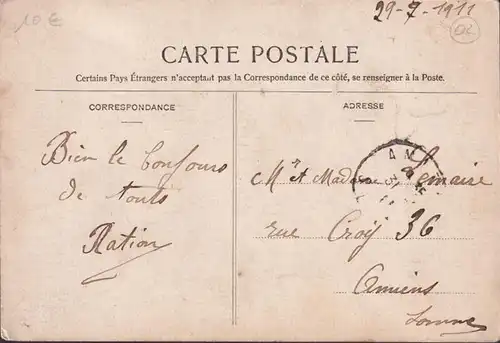 10 €
29-7-1911
CARTE POSTALE
Certains Pays Étrangers n'acceptant pas la Correspondance de ce côté, se renseigner à la Poste.
CORRESPONDANCE
Bien le bonjours
de touts
ADRESSE
AM
Mr et Madame Lemaire
rue Croÿ 36
Amiens
Somme